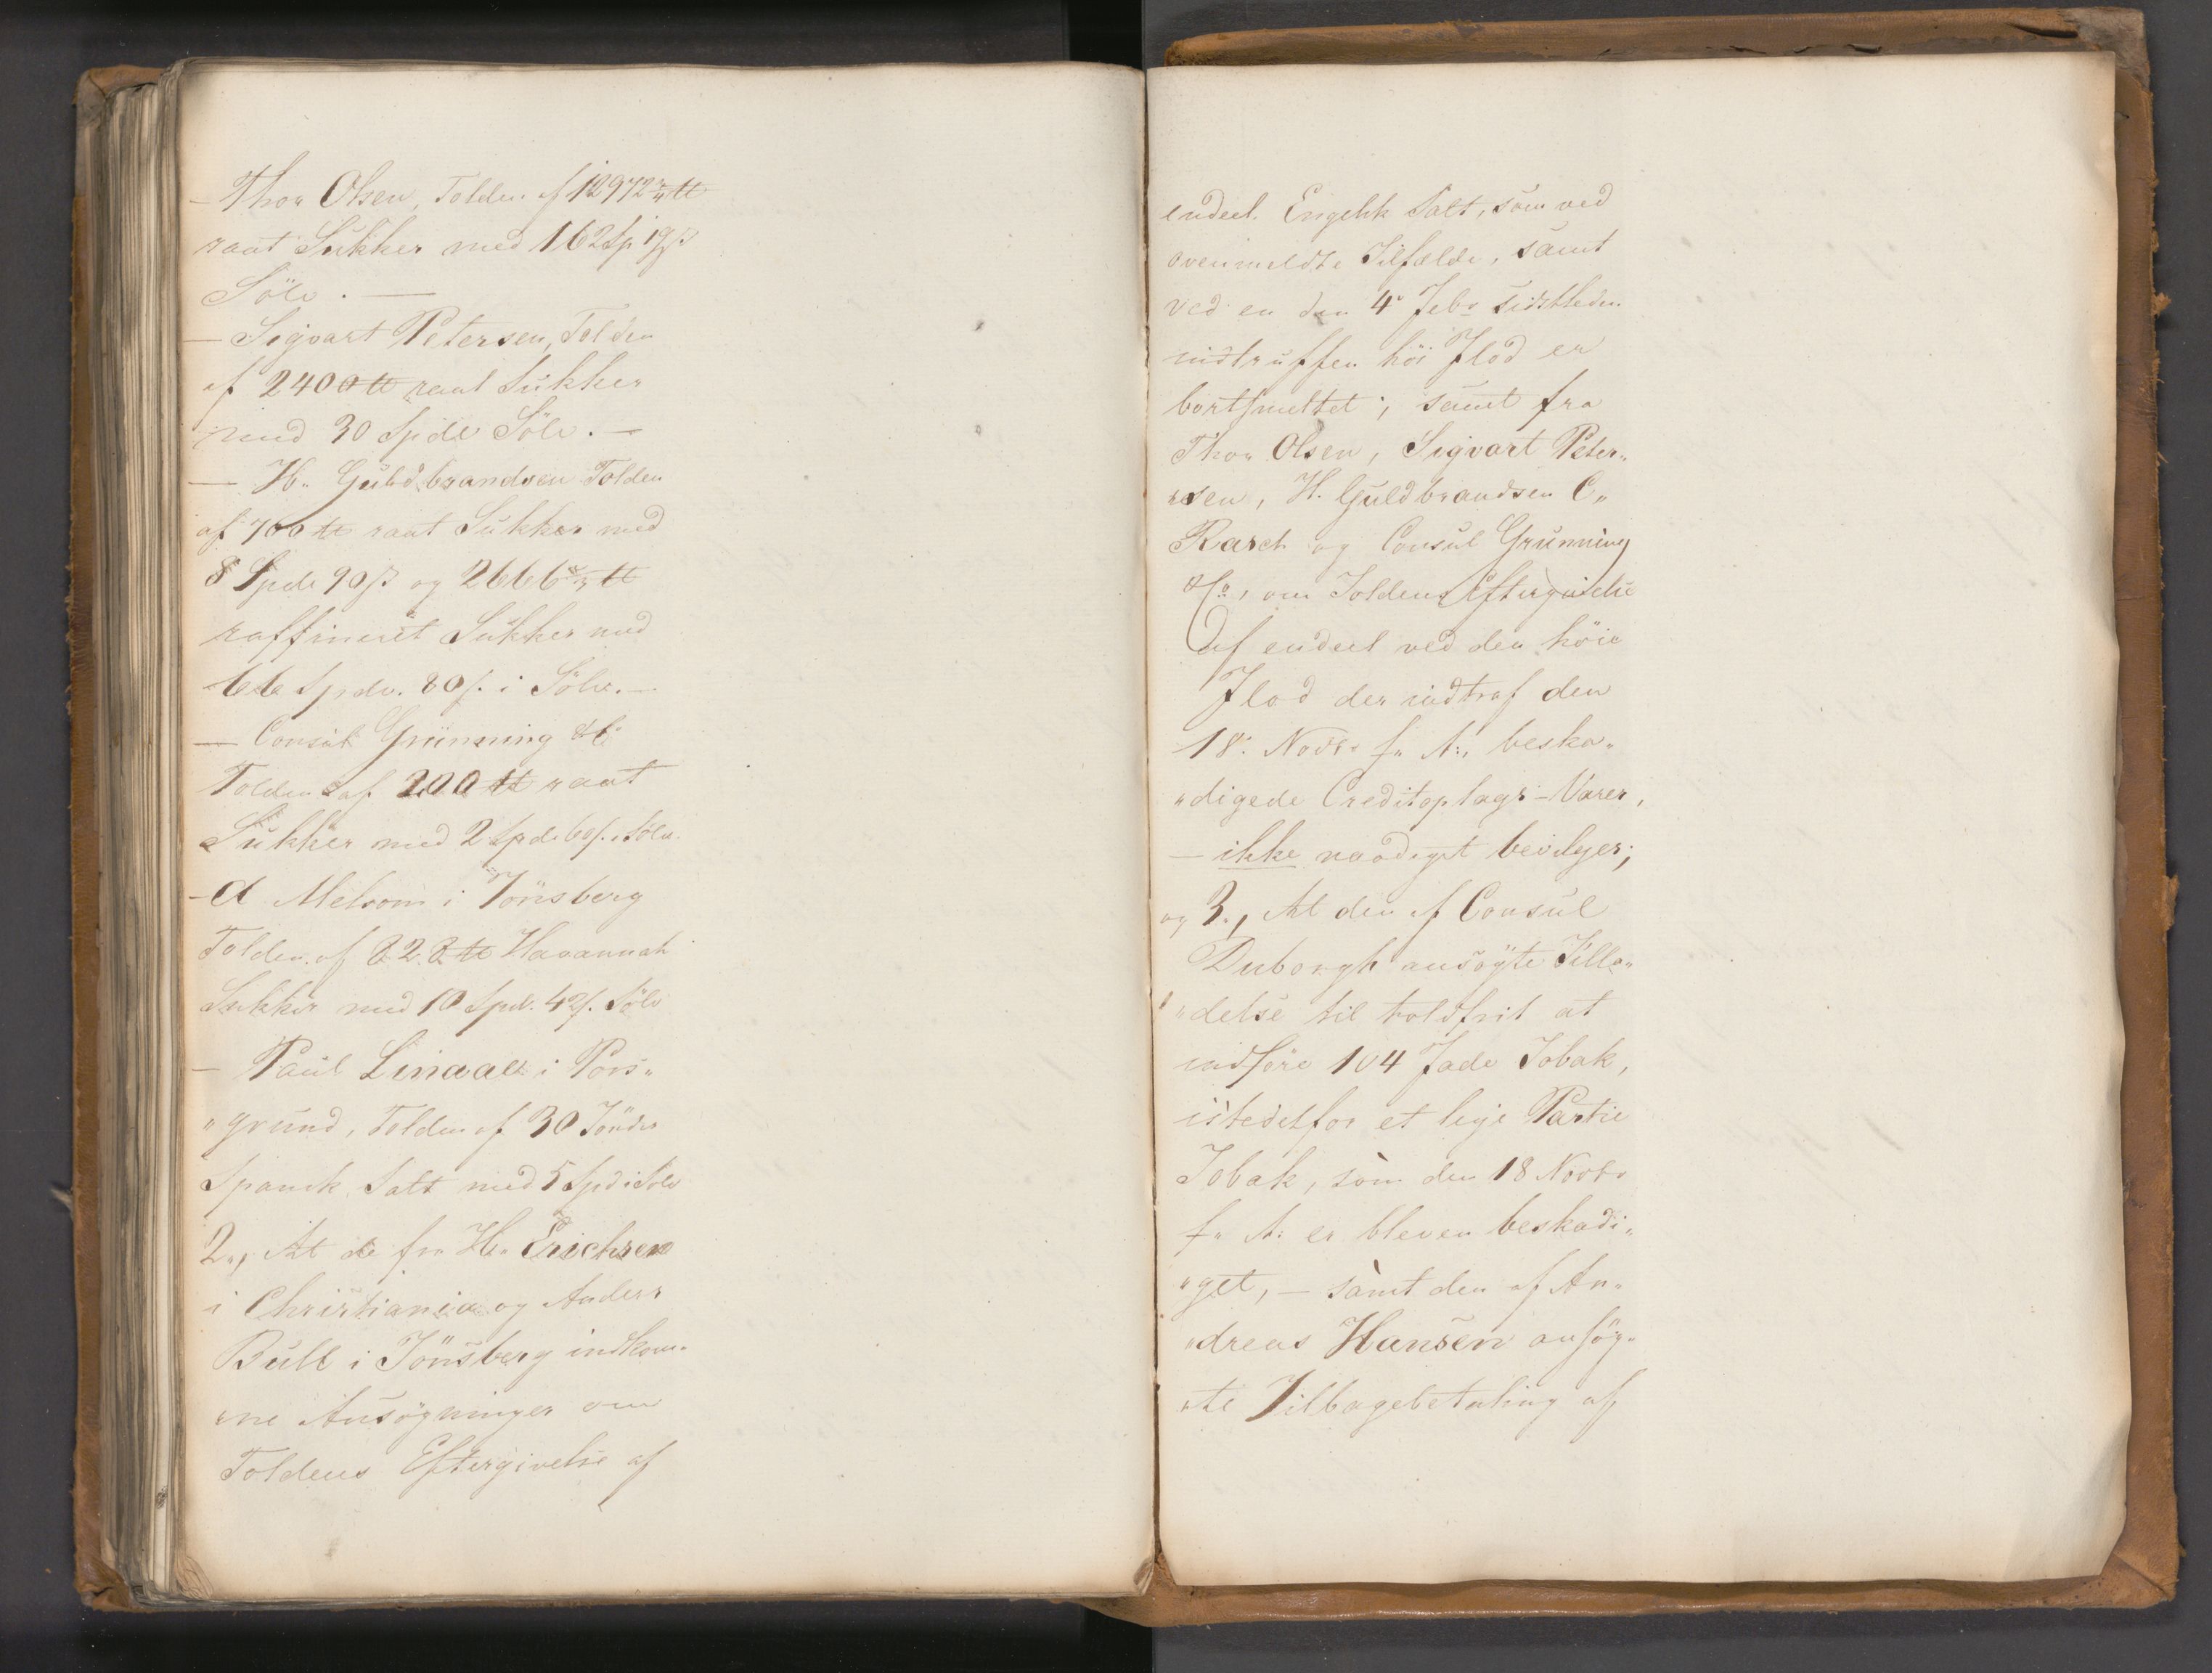 — Thor Olsen, Tolden af 12972 3/4 ℔
raat Sukker med 162 Sp 19 β
Sölv. —
— Sigvart Petersen, Tolden
af 2400 ℔ raat Sukker
med 30 Spdl Sölv. —
— H. Guldbrandsen Tolden
af 700 ℔ raat Sukker med
8 Spdl 90 β og 2666 2/3 ℔
raffineret Sukker med
66 Spdl. 80 β. i Sölv. —
— Consul Grünning & Co
Tolden af 200 ℔ raat
Sukker med 2 Spdl 60 β. i Sölv.
— A Melsom i Tönsberg
Tolden af 828 ℔ Havannah
Sukker med 10 Spdl. 42 β. Sölv
— Paul Linaae i Pors„
„grund, Tolden af 30 Tönder
Spansk Salt med 5 Spd i Sölv
2., At de fra H. Erichsen
i Christiania og Anders
Bull i Tönsberg indkom„
„ne Ansögninger om
Toldens Eftergivelse af
endeel Engelsk Salt, som ved
ovenmeldte Tilfælde, samt
ved en den 4de Febr sidstleden
indtruffen höi Flod er
bortsmeltet; samt fra
Thor Olsen, Sigvart Peter„
„sen, H. Guldbrandsen C.
Rasch og Consul Grünning
& Co, om Toldens Eftergivelse
af endeel ved den höie
Flod der indtraf den
18. Novbr f. A., beska„
„digede Creditoplags-Varer,
— ikke naadigst bevilges;
og 3., At den af Consul
Duborgh ansögte Tilla„
„delse til toldfrit at
indföre 104 Fade Tobak,
istedetfor et lige Partie
Tobak, som den 18 Novbr
f. A: er bleven beskadi„
„get, — samt den af An„
„dreas Hansen ansög„
„te Tilbagebetaling af